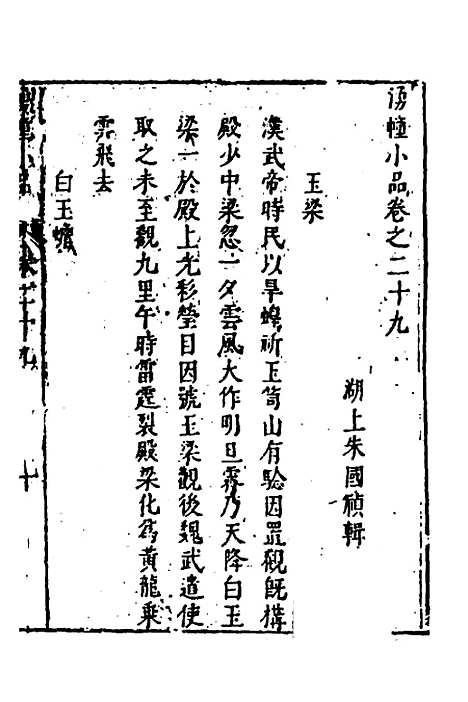 湧幢小品卷之二十九
湖上朱國禎輯
玉梁
漢武帝時民以旱蝗祈玉笥山有驗因置觀旣構
殿少中梁忽一夕雲風大作明旦霽乃天降白玉
梁一於殿上光彩瑩目因號玉梁觀後魏武遣使
取之未至觀九里午時雷霆裂殿梁化爲黃龍乘
雲飛去
白玉蟾
小品
卷二十九